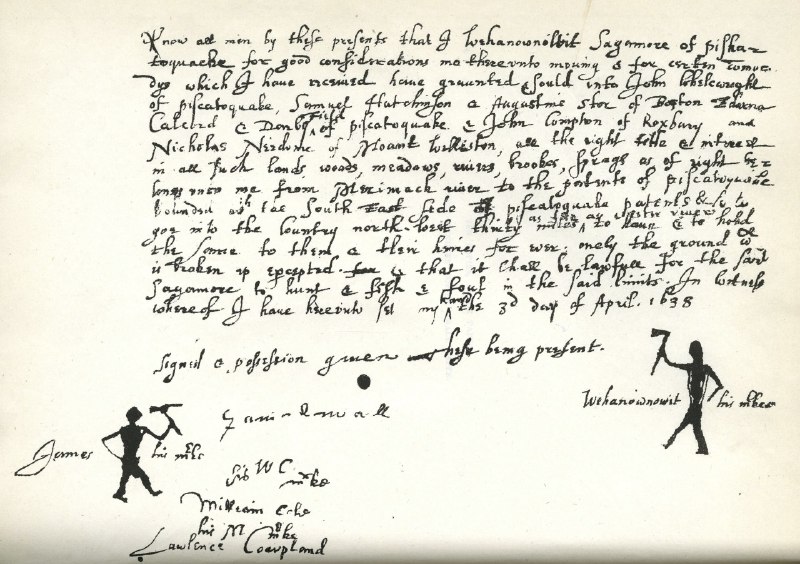 Know all men by these presents that I Wehanownowit Sagamore of piskatoquacke for good considerations me therevnto moving & for certen comodys which I have received have graunted & sould vnto John Whelewright
of piscatoquake, Samuel Hutchinson & Augustine Stor of Boston Edward
Calcord & Darby Field of piscatoquake & John Compton of Roxbury and
Nicholas Needome of Moant Walliston, all the right title & interest
in all such lands, woods, meadows, rivers, brookes, springs as of right belongs vnto me from Merimack river to the patents of piscatoquake
bounded wth the South East side of piscatoquake patents & so to
goe into the Country north West thirty miles as far as oyster river to have & to hold
the same to them & their heires for ever. onely the ground wch
is broken up excepted. & that it shall be lawfull for the said
Sagamore to hunt & fish & foul in the said limits. In witness
whereof I have herevnto set my hand the 3d day of April. 1638
Signed & possession given these being present.
Wehanownowit his mke
James his mke
his W C mke
William Cole
his M mke
Lawrence Cowpland